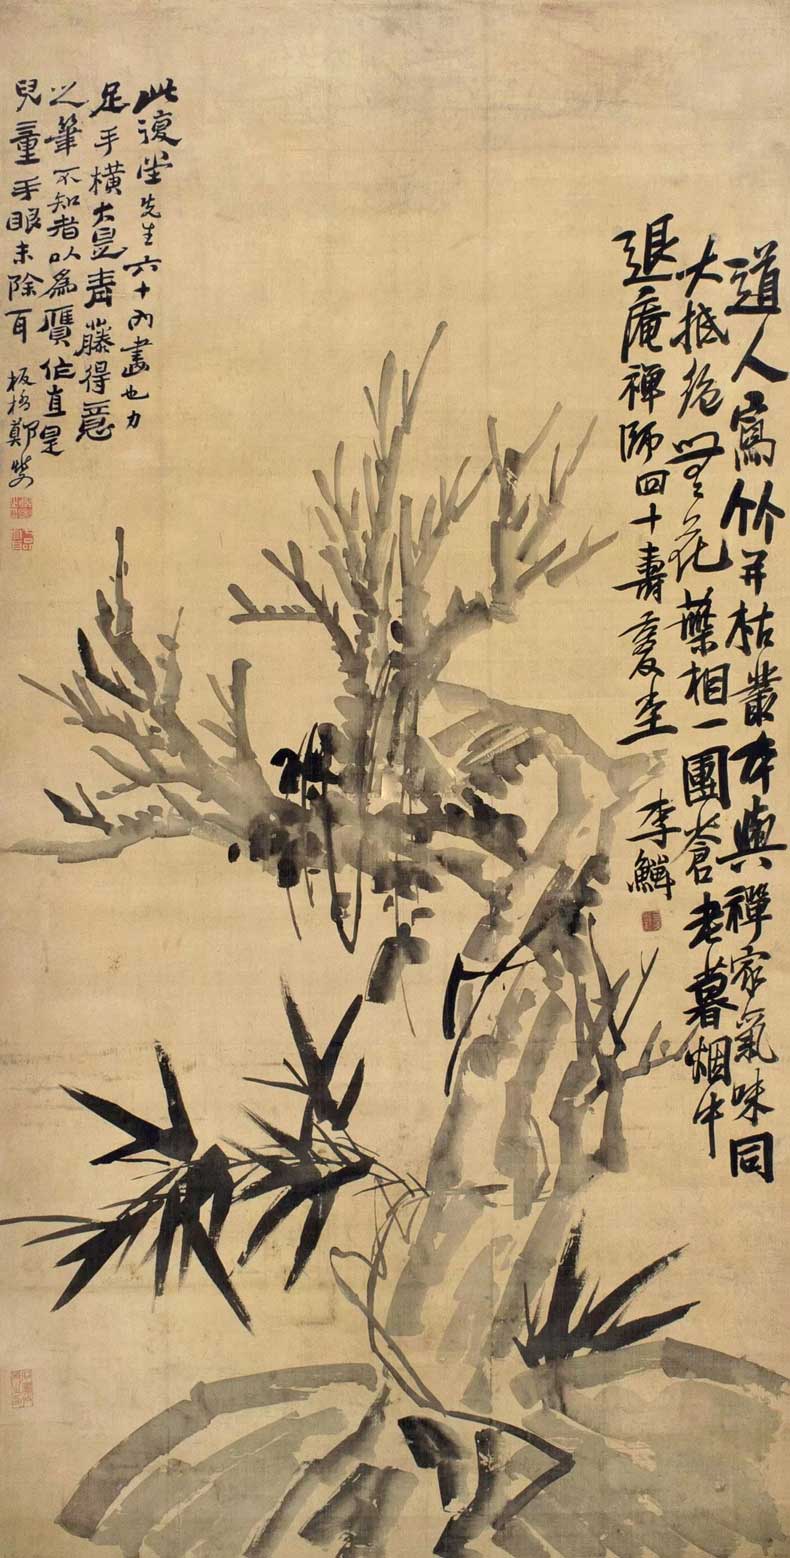 道人寫竹并枯叢本與禪家氣味同
大抵絕無花葉相一團蒼老暮烟中
退庵禪師四十壽 復堂 李鱓
此復堂先生六十內畫也力
足手橫大是青藤得意
之筆不知者以為贋作直是
兒童手眼未除耳 板橋鄭燮